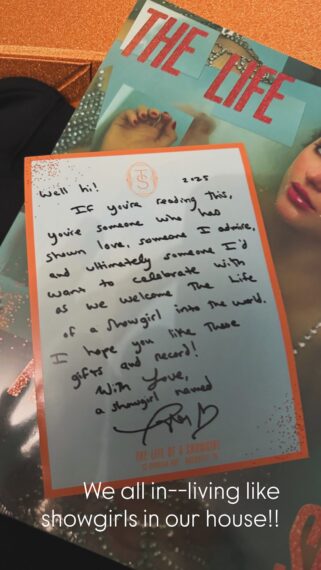 THE LIFE
TS
Well hi! 2025
If you're reading this,
you're someone who has
shown love, someone I admire,
and ultimately someone I'd
want to celebrate with
as we welcome The Life
of a Showgirl into the world.
I hope you like these
gifts and record!
With love,
a showgirl named
THE LIFE OF A SHOWGIRL
We all in--living like
showgirls in our house!!